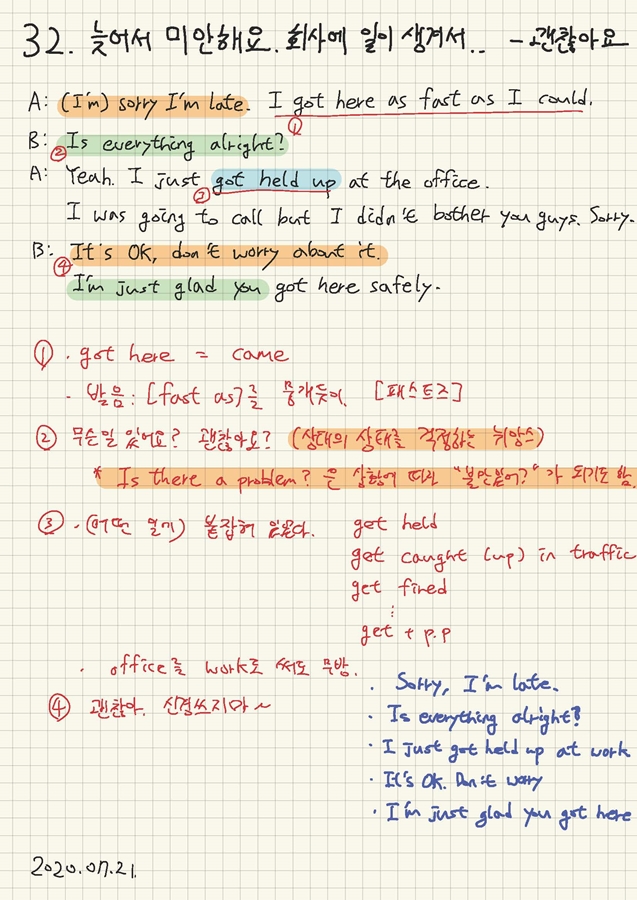 32. 늦어서 미안해요. 회사에 일이 생겨서.. - 괜찮아요
A: (I'm) sorry I'm late. I got here as fast as I could.
①
B: Is everything alright?
②
A: Yeah. I just got held up at the office.
③
I was going to call but I didn't bother you guys. Sorry.
B: It's OK, don't worry about it.
④
I'm just glad you got here safely.
① · got here = came
· 발음: [fast as]를 뭉개듯이. [패스트즈]
② 무슨일 있어요? 괜찮아요? (상대의 상태를 걱정하는 뉘앙스)
* Is there a problem? 은 상황에 따라 "불만있어?"가 되기도 함.
③ · (어떤 일에) 붙잡혀 있었다. get held
get caught (up) in traffic
get fired
⋮
get + p.p
· office를 work로 써도 무방.
④ 괜찮아. 신경쓰지마~
· Sorry, I'm late.
· Is everything alright?
· I just got held up at work
· It's OK. Don't worry
· I'm just glad you got here
2020.07.21.